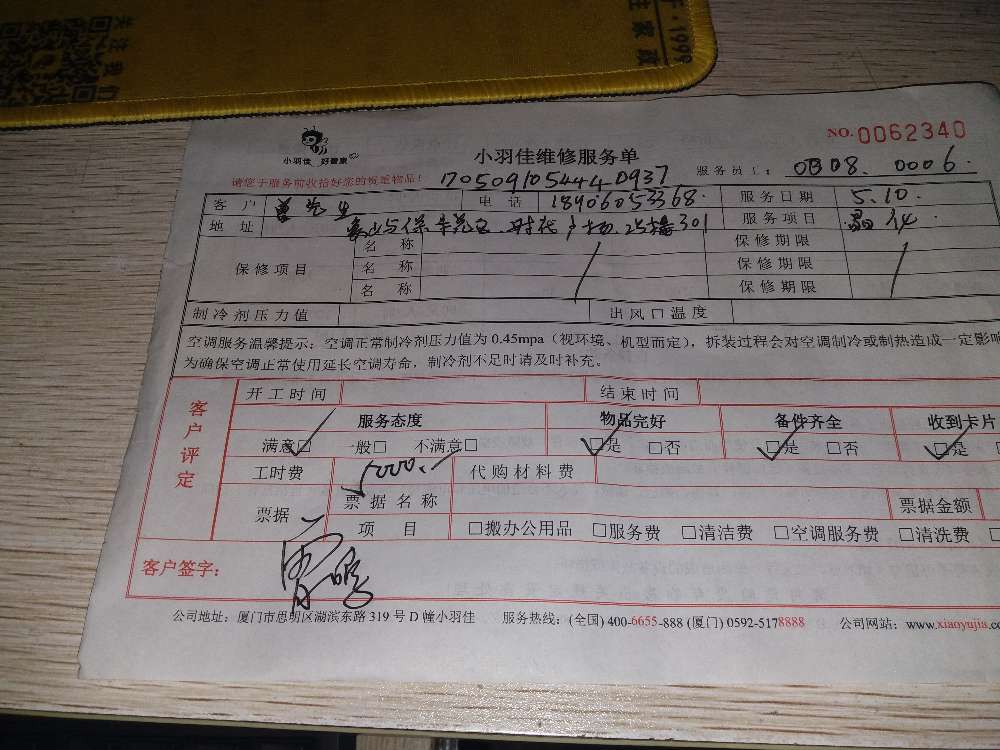 关注我们
于·1999
住家政
小羽佳 好管家
NO. 0062340
小羽佳维修服务单
服务员工: 0B08. 0006.
请您于服务前收拾好您的贵重物品!
170509105444D937
客户 曾先生 电话 18906053368. 服务日期 5.10.
地址 时代广场 301 服务项目
保修项目 名称 保修期限
名称 保修期限
名称 保修期限
制冷剂压力值 出风口温度
空调服务温馨提示:空调正常制冷剂压力值为0.45mpa(视环境、机型而定),拆装过程会对空调制冷或制热造成一定影响
为确保空调正常使用延长空调寿命,制冷剂不足时请及时补充。
客户评定
开工时间 结束时间
服务态度 物品完好 备件齐全 收到卡片
满意☑ 一般□ 不满意□ ☑是 □否 ☑是 □否 ☑是
工时费 5000. 代购材料费
票据 票据名称 票据金额
项目 □搬办公用品 □服务费 □清洁费 □空调服务费 □清洗费
客户签字:
公司地址:厦门市思明区湖滨东路319号D幢小羽佳 服务热线:(全国) 400-6655-888 (厦门) 0592-5178888 公司网站:www.xiaoyujia.co